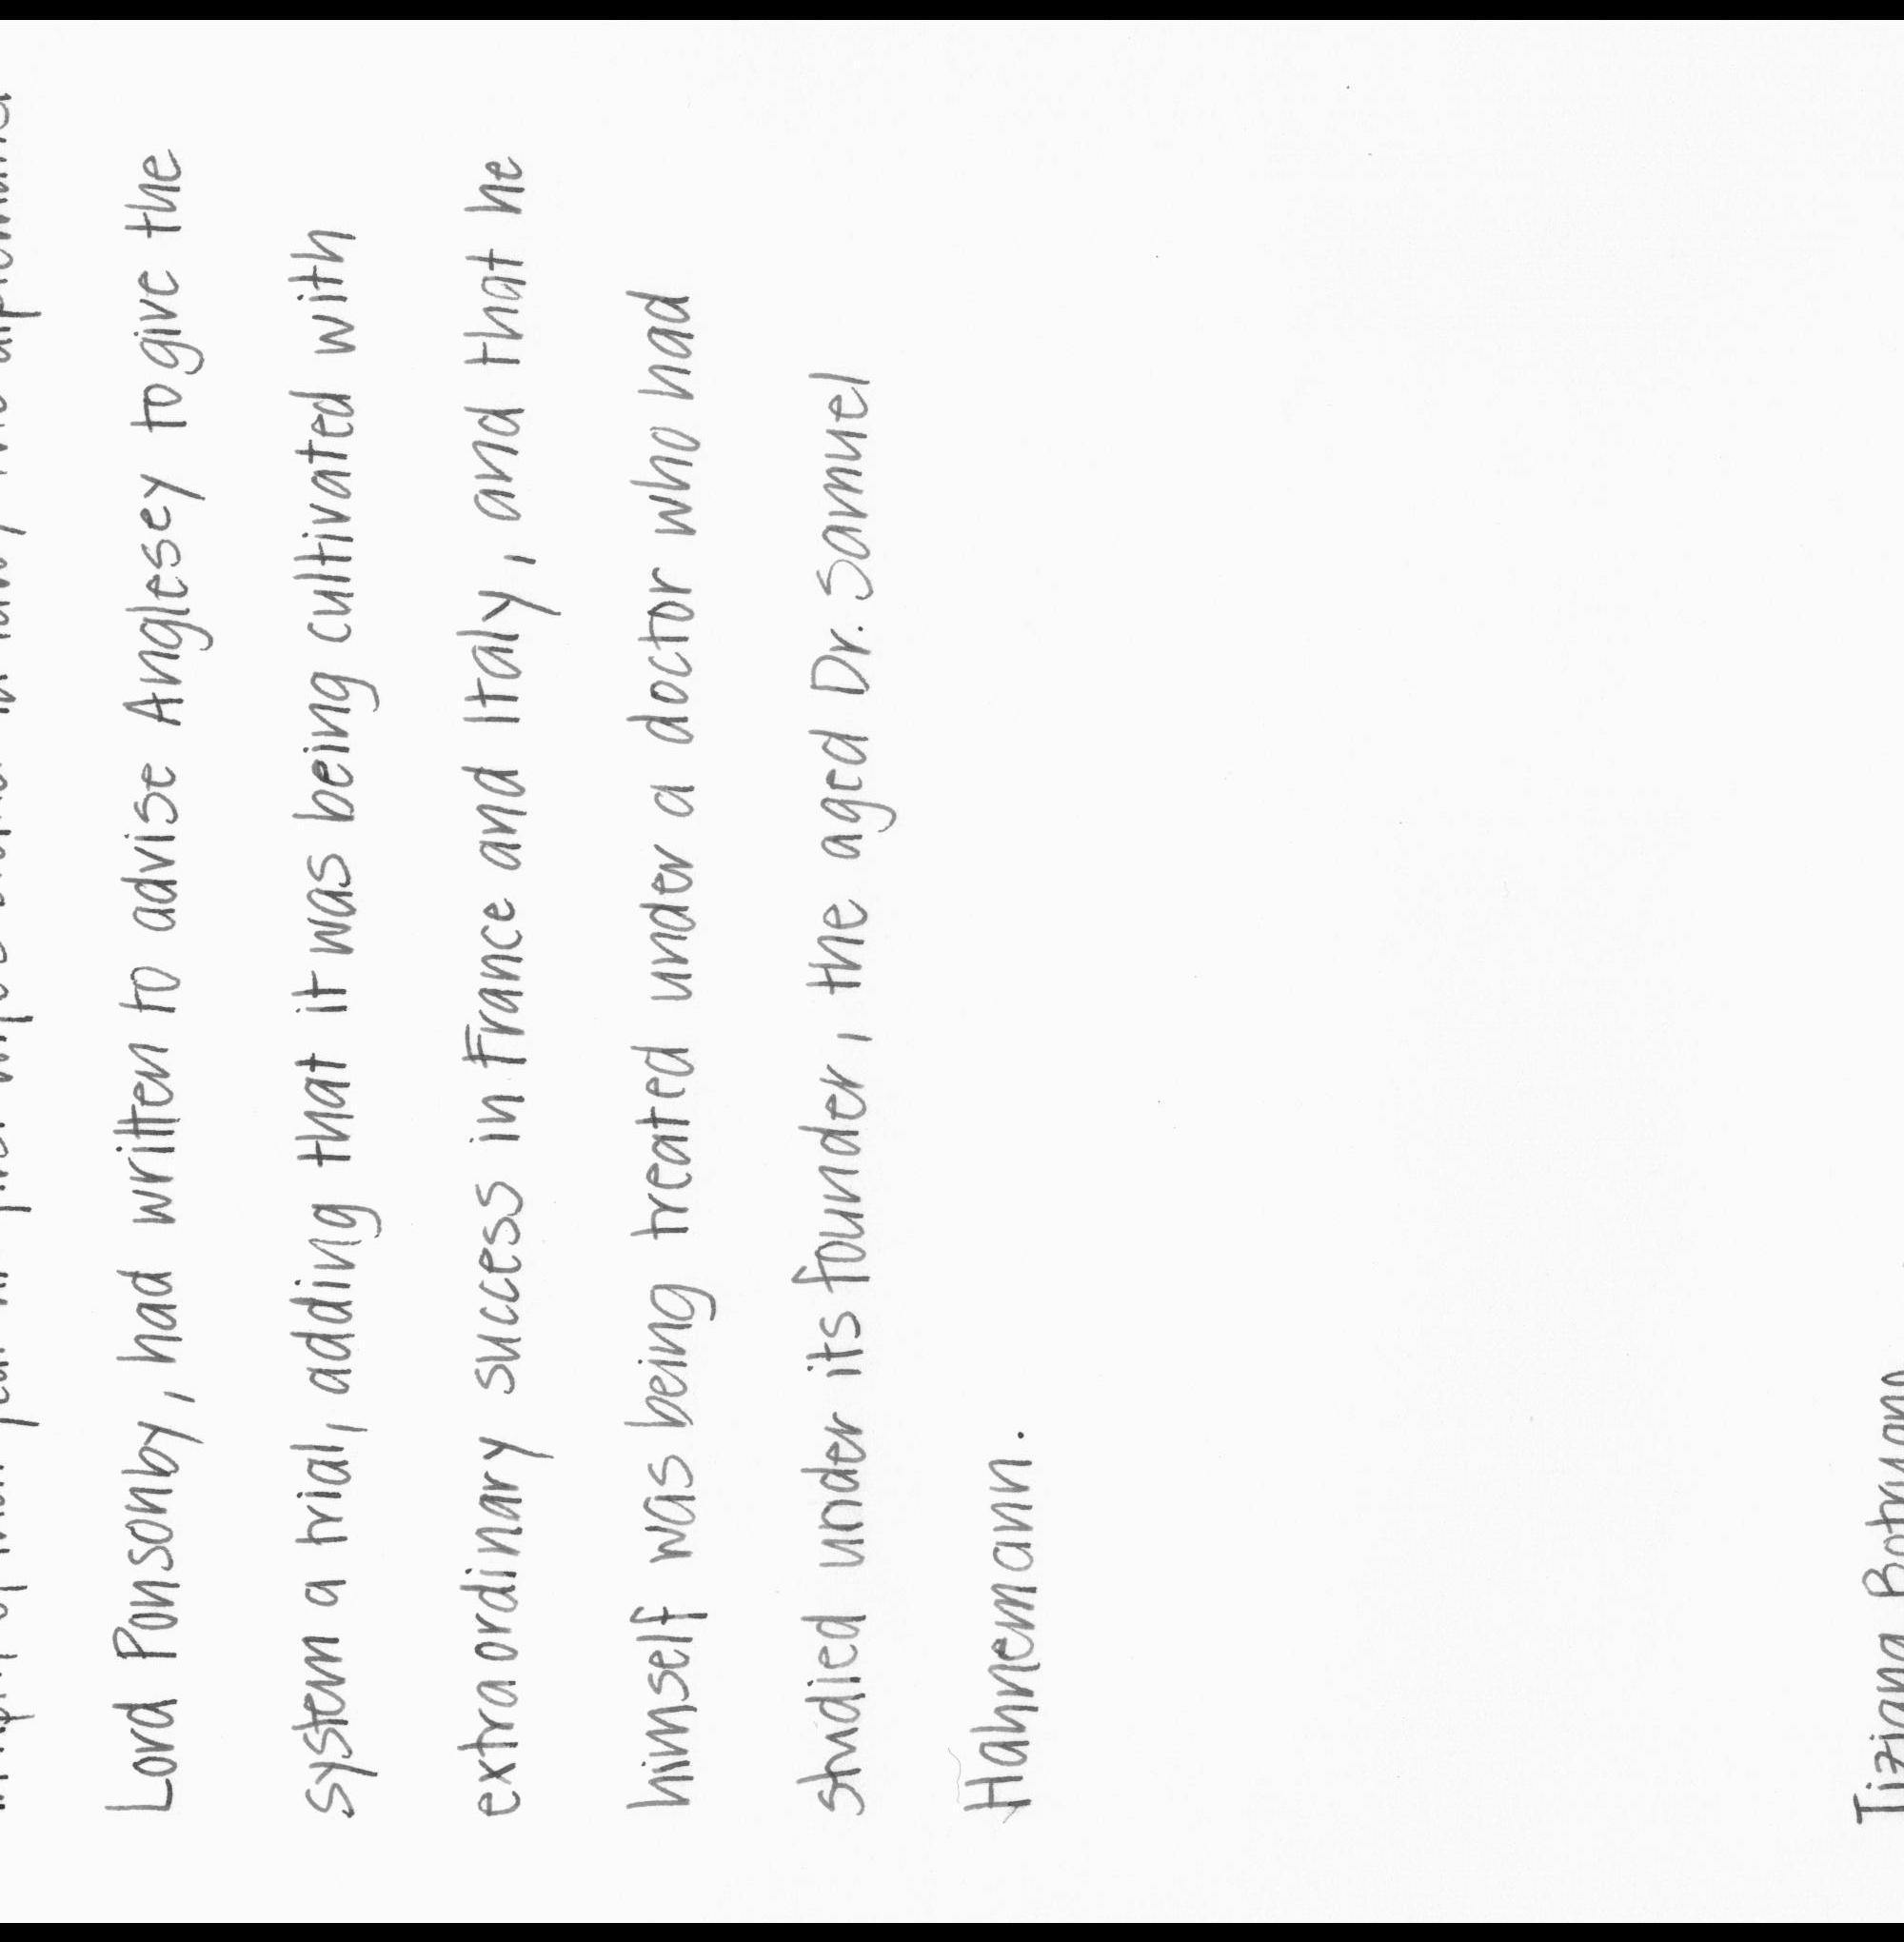 Lord Ponsonby, had written to advise Anglesey to give the
system a trial, adding that it was being cultivated with
extraordinary success in France and Italy, and that he
himself was being treated under a doctor who had
studied under its founder, the aged Dr. Samuel
Hahnemann.
Tiziana Botrugno